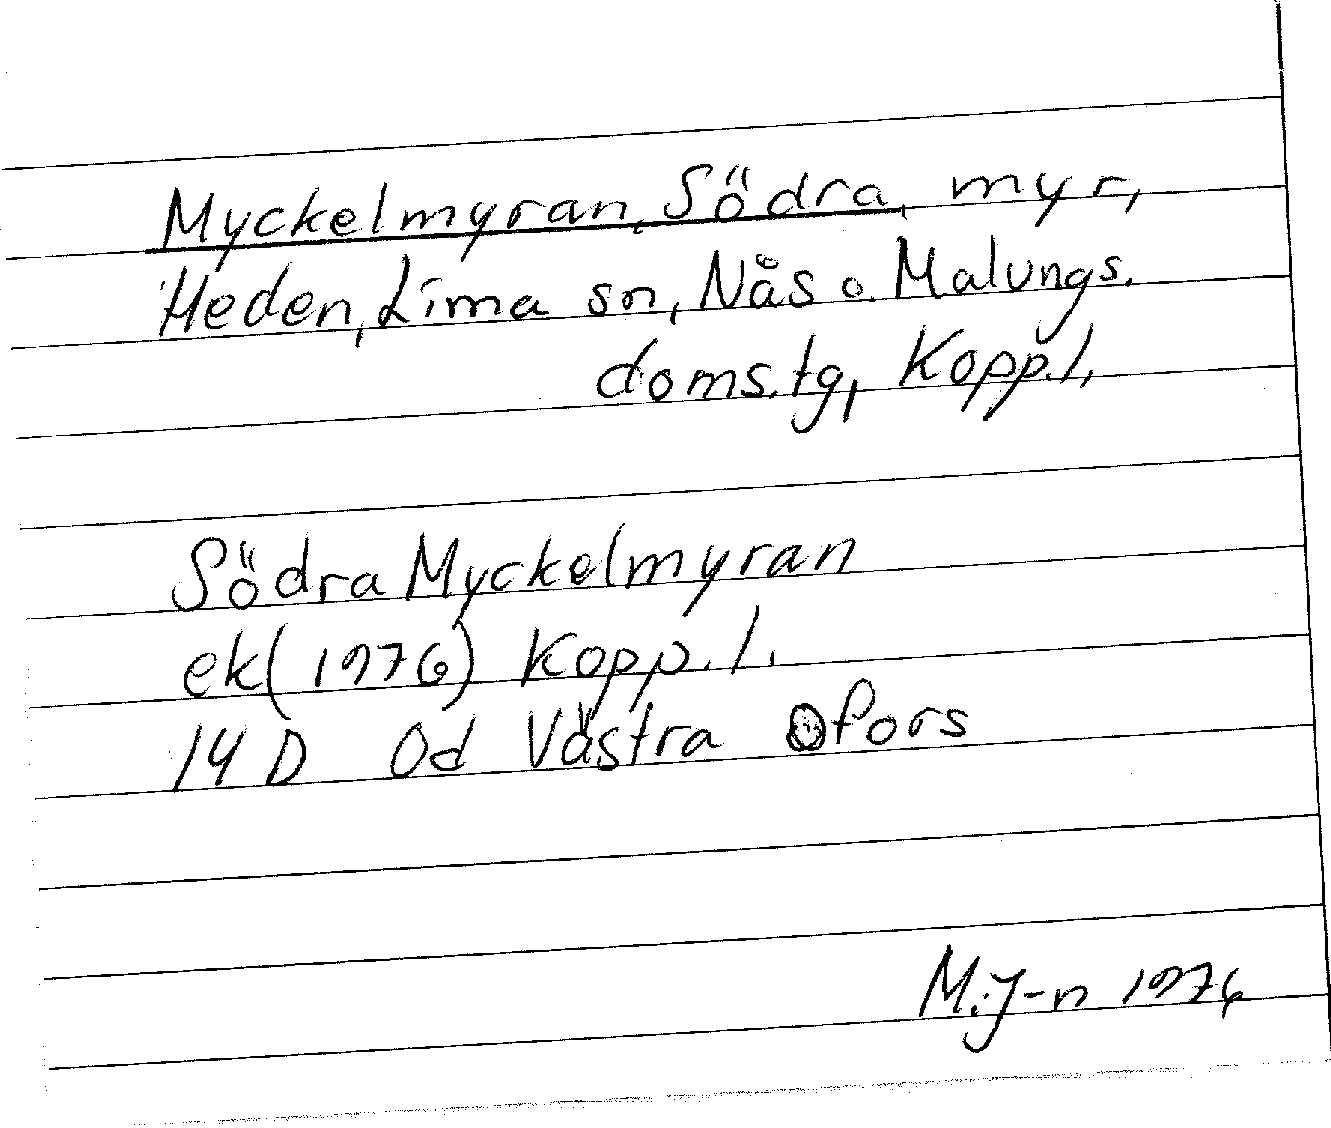 Myckelmyran, Södra, myr,
Heden, Lima sn, Nås o. Malungs.
doms.tg, Kopp.l,
Södra Myckelmyran
ek(1976) Kopp.l.
14 D 0d Västra fors
M.J-n 1976